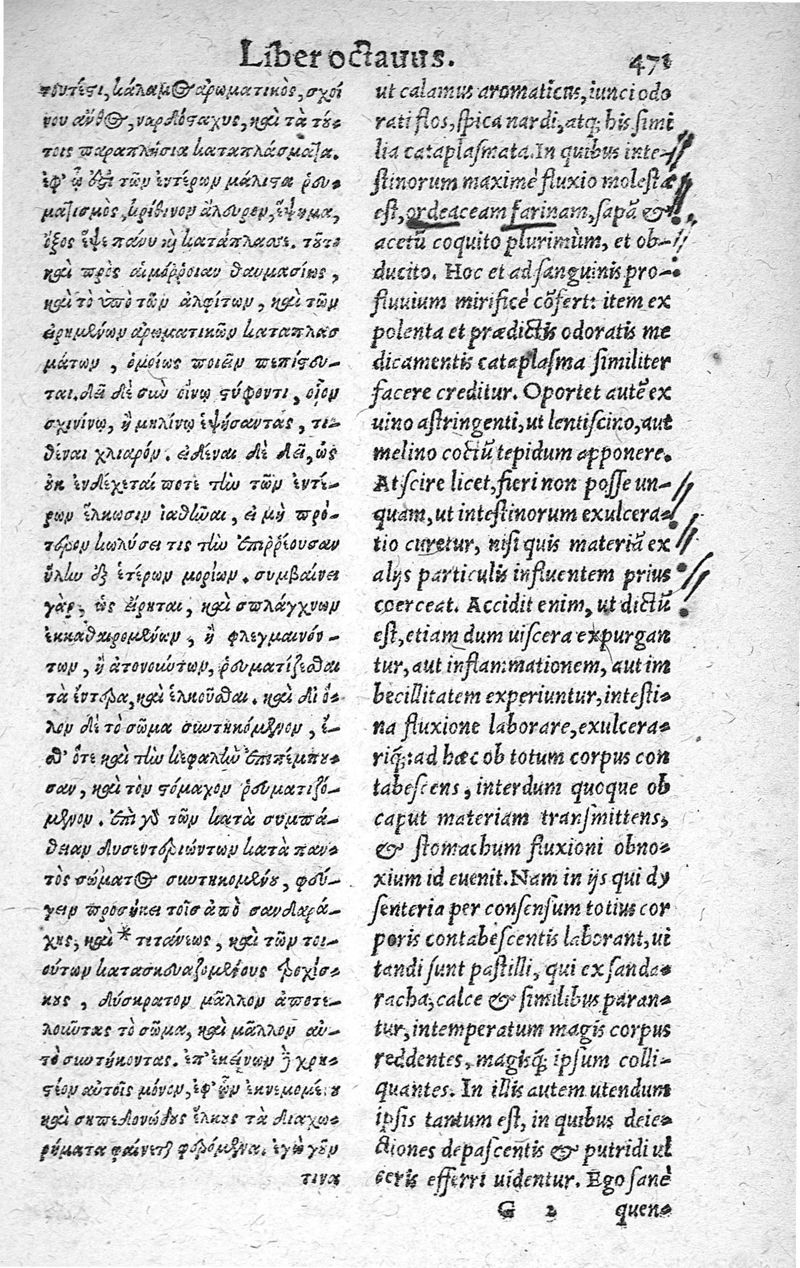 Liber octauus. 471
τουτέστι, κάλαμος ἀρωματικὸς, σχοί
νου ἄνθος, ναρδόσταχυς, καὶ τὰ τού-
τοις παραπλήσια καταπλάσματα.
ἐφ' ὧ δὲ τῶν ἐντέρων μάλιστα ῥευ-
ματισμὸς, κρίθινον ἄλευρον, ἕψημα,
ὄξος ἕψε πάνυ καὶ κατάπλασσε. τοῦτο
καὶ πρὸς αἱμόρροιαν θαυμασίως,
καὶ τὸ ὑπὸ τῶν ἀλφίτων, καὶ τῶν
εἰρημένων ἀρωματικῶν καταπλασ
μάτων, ὁμοίως ποιεῖν πεπίστευ-
ται. δεῖ δὲ σὺν οἴνῳ στύφοντι, οἷον
σχινίνῳ, ἢ μηλίνῳ ἑψήσαντας, τι-
θέναι χλιαρόν. εἰδέναι δὲ δεῖ, ὡς
οὐκ ἐνδέχεταί ποτε τὴν τῶν ἐντέ-
ρων ἕλκωσιν ἰαθῆναι, εἰ μὴ πρό-
τερον κωλύσει τις τὴν ἐπιρρέουσαν
ὕλην ἐξ ἑτέρων μορίων. συμβαίνει
γὰρ, ὡς εἴρηται, καὶ σπλάγχνων
ἐκκαθαιρομένων, ἢ φλεγμαινόν-
των, ἢ ἀτονούντων, ῥευματίζεσθαι
τὰ ἔντερα, καὶ ἑλκοῦσθαι. καὶ δι' ὅ-
λον δὲ τὸ σῶμα συντηκόμενον, ἔ-
σθ' ὅτε καὶ τὴν κεφαλὴν ἐπιπέμπου-
σαν, καὶ τὸν στόμαχον ῥευματιζό-
μενον. ἐπὶ γὸ τῶν κατὰ συμπά-
θειαν δυσεντεριώντων κατὰ παν-
τὸς σώματος συντηκομένου, φεύ-
γειν προσήκει τοῖς ἀπὸ σανδαρά-
χης, καὶ * τιτάνεως, καὶ τῶν τοι-
ούτων κατασκευαζομένους τροχίσ-
κους, δύσκρατον μᾶλλον ἀποτε-
λοῦντας τὸ σῶμα, καὶ μᾶλλον αὐ-
τὸ συντήκοντας. ἐπ' ἐκείνων δὲ χρη-
στέον αὐτοῖς μόνον, ἐφ' ὧν ἐκνεμομένου
καὶ σηπεδονώδους ἕλκους τὰ διαχω-
ρήματα φαίνεται φερόμενα. ἐγὼ γοῦν
τινα
ut calamus aromaticus, iunci odo
rati flos, spica nardi, atq; his simi
lia cataplasmata. In quibus inte-
stinorum maximè fluxio molesta
est, ordeaceam farinam, sapā &
acetū coquito plurimùm, et ob-
ducito. Hoc et ad sanguinis pro-
fluuium mirificè cōfert: item ex
polenta et prædictis odoratis me
dicamentis cataplasma similiter
facere creditur. Oportet autē ex
uino astringenti, ut lentiscino, aut
melino coctū tepidum apponere.
At scire licet, fieri non posse un-
quam, ut intestinorum exulcera-
tio curetur, nisi quis materiā ex
alijs particulis influentem prius
coerceat. Accidit enim, ut dictū
est, etiam dum uiscera expurgan
tur, aut inflammationem, aut im
becillitatem experiuntur, intesti-
na fluxione laborare, exulcera-
riq;: ad hæc ob totum corpus con
tabescens, interdum quoque ob
caput materiam transmittens,
& stomachum fluxioni obno-
xium id euenit. Nam in ijs qui dy
senteria per consensum totius cor
poris contabescentis laborant, ui
tandi sunt pastilli, qui ex sanda-
racha, calce & similibus paran-
tur, intemperatum magis corpus
reddentes, magisq́; ipsum colli-
quantes. In illis autem utendum
ipsis tantum est, in quibus deie-
ctiones depascentis & putridi ul
ceris efferri uidentur. Ego sanè
G 2 quen-